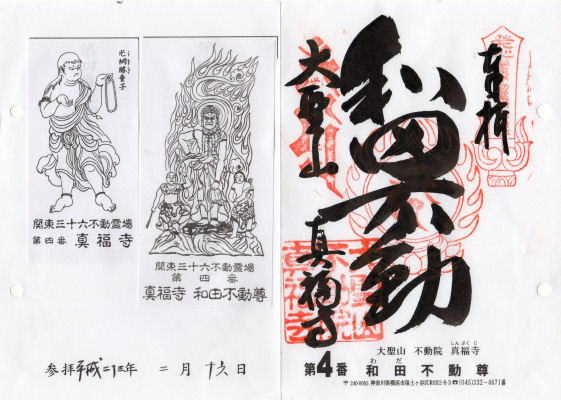 奉拝
和田不動
大聖山
真福寺
大聖山 不動院 真福寺
しんぷくじ
第4番 和田不動尊
わだ
〒240-0065 神奈川県横浜市保土ヶ谷区和田2-8-3 ☎(045)332-4671番
関東三十六不動霊場
第四番 真福寺
関東三十六不動霊場
第四番
真福寺 和田不動尊
参拝平成二十三年 二月 十六日